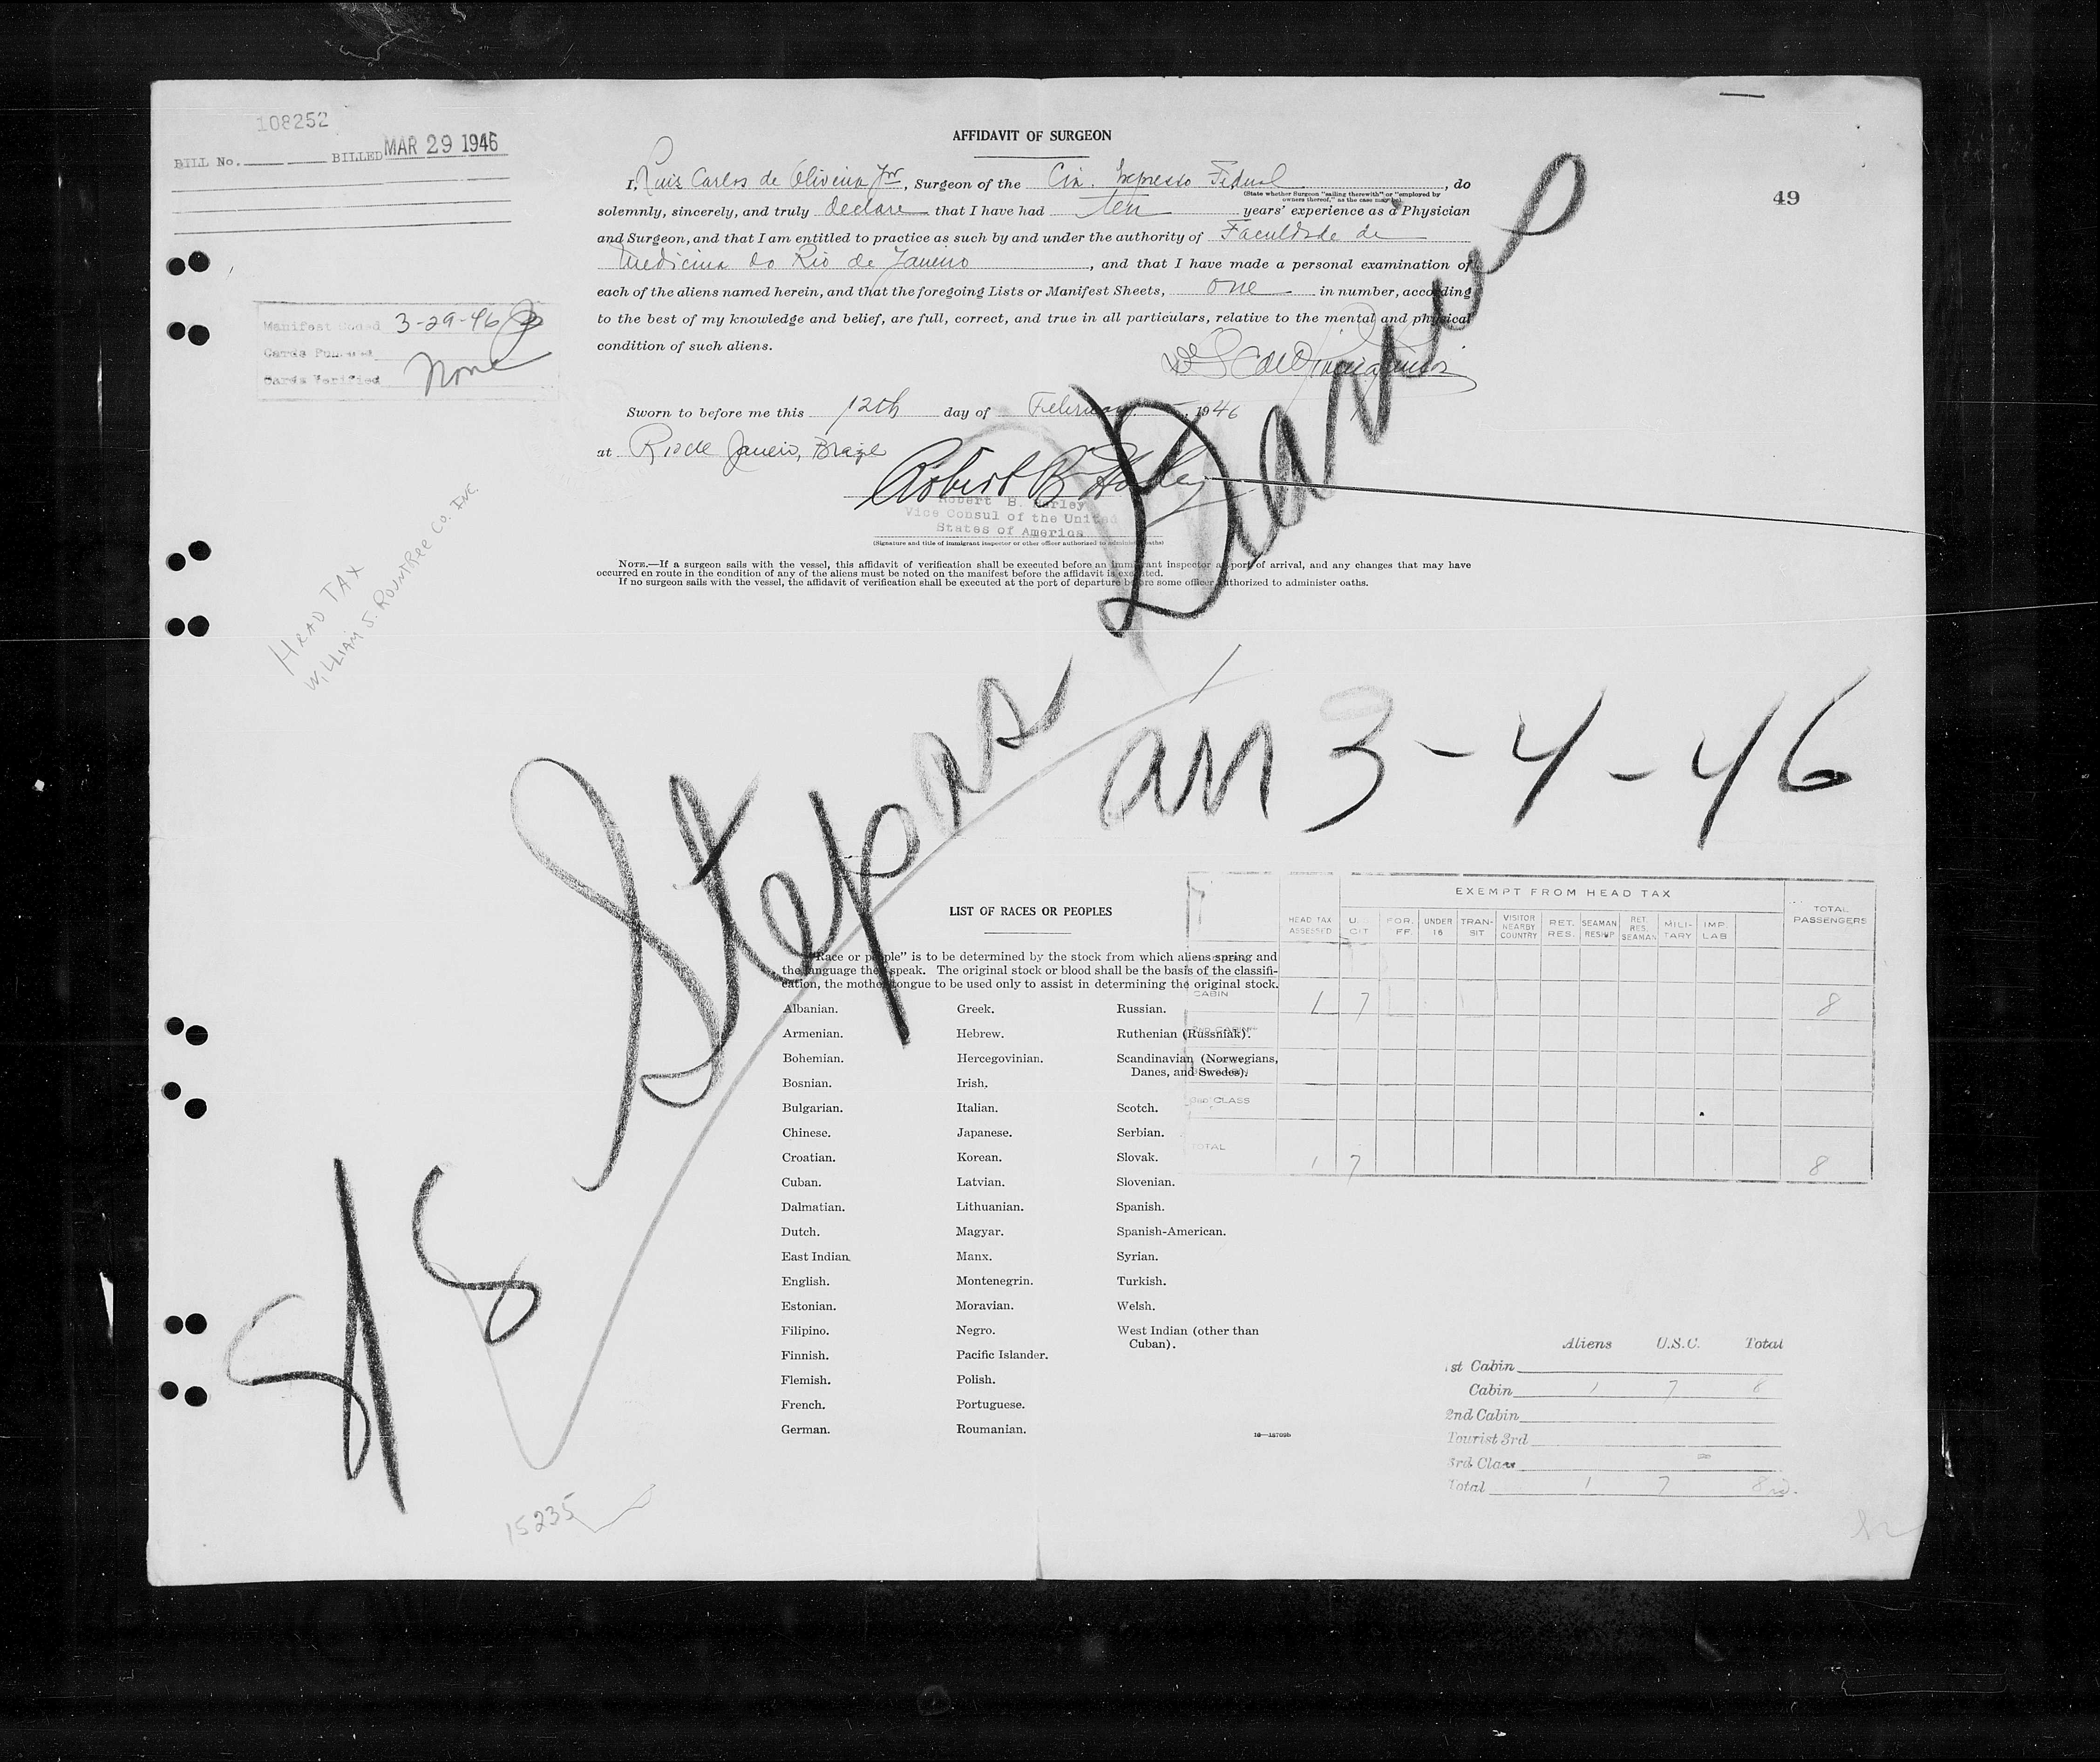 108252
BILL No. BILLED MAR 29 1946
AFFIDAVIT OF SURGEON
49
I, Luis Carlos de Oliveira Jnr, Surgeon of the Cia. Expresso Federal, do
(State whether Surgeon "sailing therewith" or "employed by
owners thereof," as the case may be)
solemnly, sincerely, and truly declare that I have had ten years' experience as a Physician
and Surgeon, and that I am entitled to practice as such by and under the authority of Faculdade de
Medicina do Rio de Janeiro, and that I have made a personal examination of
each of the aliens named herein, and that the foregoing Lists or Manifest Sheets, one in number, according
to the best of my knowledge and belief, are full, correct, and true in all particulars, relative to the mental and physical
condition of such aliens.
Manifest 3-29-46
Cards Punched
Cards Verified None
Sworn to before me this 12th day of February, 1946
at Rio de Janeiro, Brazil
Robert B Harley
Robert B. Harley
Vice Consul of the United
States of America
(Signature and title of immigrant inspector or other officer authorized to administer oaths)
NOTE.—If a surgeon sails with the vessel, this affidavit of verification shall be executed before an immigrant inspector at port of arrival, and any changes that may have
occurred en route in the condition of any of the aliens must be noted on the manifest before the affidavit is executed.
If no surgeon sails with the vessel, the affidavit of verification shall be executed at the port of departure before some officer authorized to administer oaths.
HEAD TAX
WILLIAM J. ROUNTREE CO. INC.
S/S Stepas Darius
arr 3-4-46
EXEMPT FROM HEAD TAX
HEAD TAX ASSESSED U. CIT FOR. FF. UNDER 16 TRAN-SIT VISITOR NEARBY COUNTRY RET. RES. SEAMAN RESHIP RET. RES. SEAMAN MILI-TARY IMP. LAB TOTAL PASSENGERS
CABIN 1 7 8
2ND CABIN
3RD CLASS
TOTAL 1 7 8
LIST OF RACES OR PEOPLES
"Race or people" is to be determined by the stock from which aliens spring and
the language they speak. The original stock or blood shall be the basis of the classifi-
cation, the mother tongue to be used only to assist in determining the original stock.
Albanian. Greek. Russian.
Armenian. Hebrew. Ruthenian (Russniak).
Bohemian. Hercegovinian. Scandinavian (Norwegians,
Danes, and Swedes).
Bosnian. Irish.
Bulgarian. Italian. Scotch.
Chinese. Japanese. Serbian.
Croatian. Korean. Slovak.
Cuban. Latvian. Slovenian.
Dalmatian. Lithuanian. Spanish.
Dutch. Magyar. Spanish-American.
East Indian. Manx. Syrian.
English. Montenegrin. Turkish.
Estonian. Moravian. Welsh.
Filipino. Negro. West Indian (other than
Cuban).
Finnish. Pacific Islander.
Flemish. Polish.
French. Portuguese.
German. Roumanian.
Aliens U.S.C. Total
1st Cabin
Cabin 1 7 8
2nd Cabin
Tourist 3rd
3rd Class
Total 1 7 8
15235